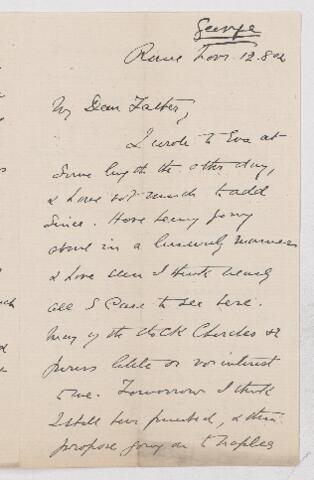 George
Rome Novr. 12. 82
My Dear Father,
I wrote to Eva at
some length the other day,
& have not much to add
since. Have been going
about in a leisurely manner
& have seen I think nearly
all I care to see here.
Many of the Churches &c
possess little or no interest
to me. Tomorrow I think
I shall have finished, & then
propose going on to Naples